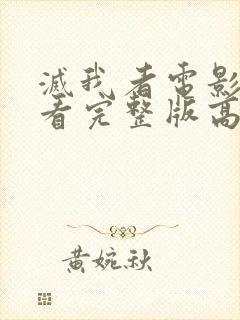 滅我者電影
看完整版高
黃婉秋